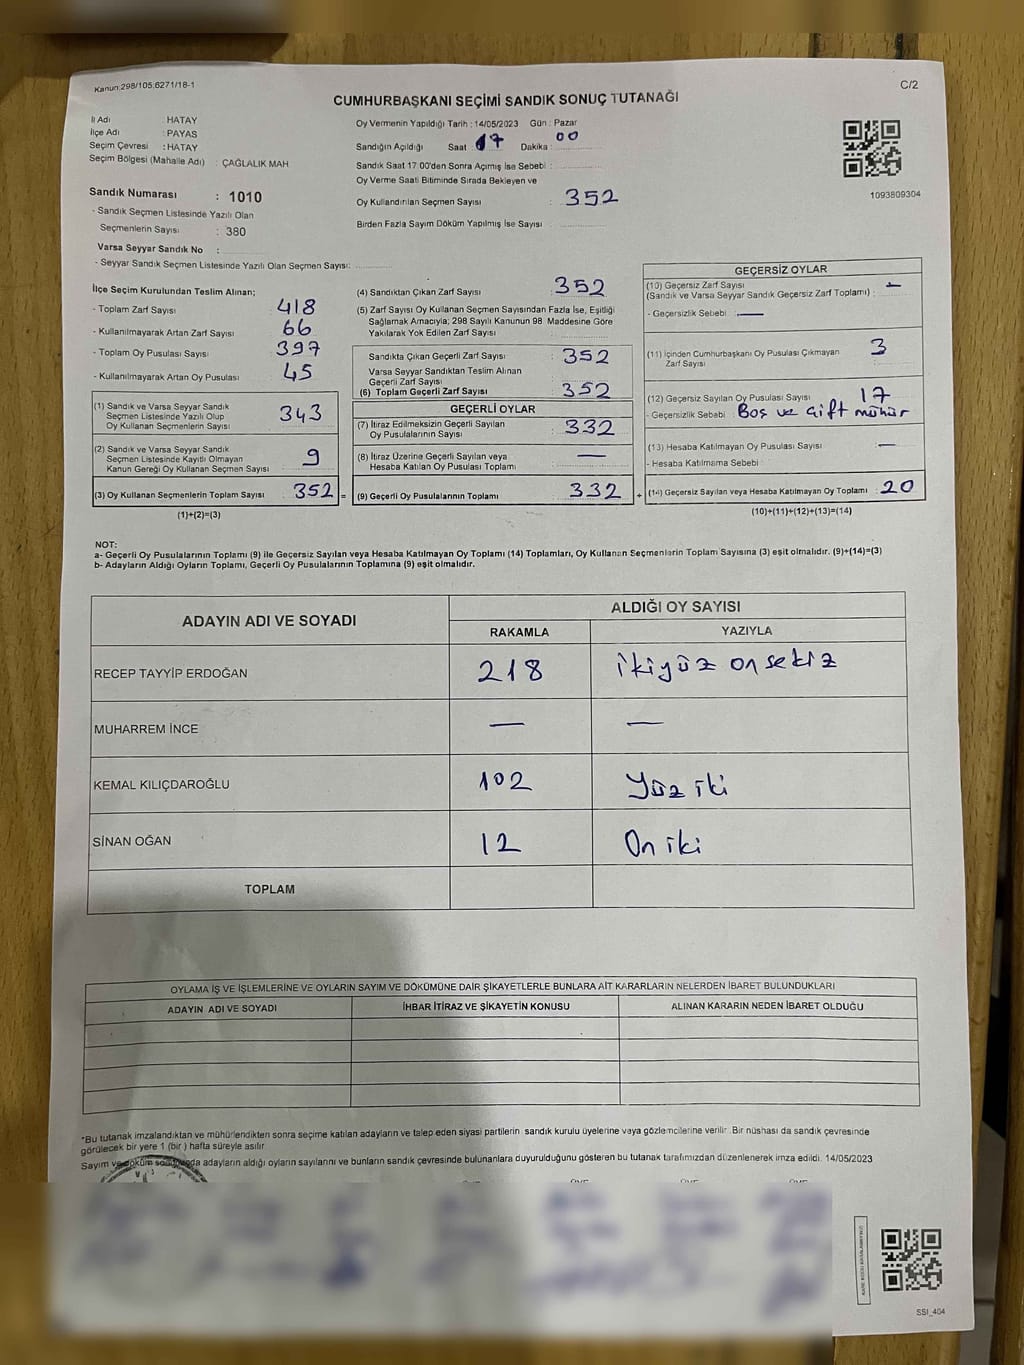 Kanun:298/105;6271/18-1
C/2
CUMHURBAŞKANI SEÇİMİ SANDIK SONUÇ TUTANAĞI
İl Adı : HATAY
İlçe Adı : PAYAS
Seçim Çevresi : HATAY
Seçim Bölgesi (Mahalle Adı) : ÇAĞLALIK MAH
Sandık Numarası : 1010
- Sandık Seçmen Listesinde Yazılı Olan
Seçmenlerin Sayısı : 380
Varsa Seyyar Sandık No :
- Seyyar Sandık Seçmen Listesinde Yazılı Olan Seçmen Sayısı:
Oy Vermenin Yapıldığı Tarih : 14/05/2023 Gün : Pazar
Sandığın Açıldığı Saat : 17 Dakika : 00
Sandık Saat 17:00'den Sonra Açımış İse Sebebi :
Oy Verme Saati Bitiminde Sırada Bekleyen ve
Oy Kullandırılan Seçmen Sayısı : 352
Birden Fazla Sayım Döküm Yapılmış İse Sayısı :
1093809304
İlçe Seçim Kurulundan Teslim Alınan;
- Toplam Zarf Sayısı : 418
- Kullanılmayarak Artan Zarf Sayısı : 66
- Toplam Oy Pusulası Sayısı : 397
- Kullanılmayarak Artan Oy Pusulası : 45
(1) Sandık ve Varsa Seyyar Sandık
Seçmen Listesinde Yazılı Olup
Oy Kullanan Seçmenlerin Sayısı : 343
(2) Sandık ve Varsa Seyyar Sandık
Seçmen Listesinde Kayıtlı Olmayan
Kanun Gereği Oy Kullanan Seçmen Sayısı : 9
(3) Oy Kullanan Seçmenlerin Toplam Sayısı : 352 =
(1)+(2)=(3)
(4) Sandıktan Çıkan Zarf Sayısı : 352
(5) Zarf Sayısı Oy Kullanan Seçmen Sayısından Fazla İse, Eşitliği
Sağlamak Amacıyla; 298 Sayılı Kanunun 98. Maddesine Göre
Yakılarak Yok Edilen Zarf Sayısı :
Sandıkta Çıkan Geçerli Zarf Sayısı : 352
Varsa Seyyar Sandıktan Teslim Alınan
Geçerli Zarf Sayısı :
(6) Toplam Geçerli Zarf Sayısı : 352
GEÇERLİ OYLAR
(7) İtiraz Edilmeksizin Geçerli Sayılan
Oy Pusulalarının Sayısı : 332
(8) İtiraz Üzerine Geçerli Sayılan veya
Hesaba Katılan Oy Pusulası Toplamı : —
(9) Geçerli Oy Pusulalarının Toplamı : 332 +
GEÇERSİZ OYLAR
(10) Geçersiz Zarf Sayısı
(Sandık ve Varsa Seyyar Sandık Geçersiz Zarf Toplamı) : —
- Geçersizlik Sebebi : —
(11) İçinden Cumhurbaşkanı Oy Pusulası Çıkmayan
Zarf Sayısı : 3
(12) Geçersiz Sayılan Oy Pusulası Sayısı : 17
- Geçersizlik Sebebi : Boş ve Çift mühür
(13) Hesaba Katılmayan Oy Pusulası Sayısı : —
- Hesaba Katılmama Sebebi :
(14) Geçersiz Sayılan veya Hesaba Katılmayan Oy Toplamı : 20
(10)+(11)+(12)+(13)=(14)
NOT:
a- Geçerli Oy Pusulalarının Toplamı (9) ile Geçersiz Sayılan veya Hesaba Katılmayan Oy Toplamı (14) Toplamları, Oy Kullanan Seçmenlerin Toplam Sayısına (3) eşit olmalıdır. (9)+(14)=(3)
b- Adayların Aldığı Oyların Toplamı, Geçerli Oy Pusulalarının Toplamına (9) eşit olmalıdır.
ADAYIN ADI VE SOYADI
ALDIĞI OY SAYISI
RAKAMLA YAZIYLA
RECEP TAYYİP ERDOĞAN 218 ikiyüz onsekiz
MUHARREM İNCE — —
KEMAL KILIÇDAROĞLU 102 Yüz iki
SİNAN OĞAN 12 On iki
TOPLAM
OYLAMA İŞ VE İŞLEMLERİNE VE OYLARIN SAYIM VE DÖKÜMÜNE DAİR ŞİKAYETLERLE BUNLARA AİT KARARLARIN NELERDEN İBARET BULUNDUKLARI
ADAYIN ADI VE SOYADI İHBAR İTİRAZ VE ŞİKAYETİN KONUSU ALINAN KARARIN NEDEN İBARET OLDUĞU
*Bu tutanak imzalandıktan ve mühürlendikten sonra seçime katılan adayların ve talep eden siyasi partilerin sandık kurulu üyelerine veya gözlemcilerine verilir. Bir nüshası da sandık çevresinde
görülecek bir yere 1 (bir) hafta süreyle asılır.
Sayım ve döküm sonunda adayların aldığı oyların sayılarını ve bunların sandık çevresinde bulunanlara duyurulduğunu gösteren bu tutanak tarafımızdan düzenlenerek imza edildi. 14/05/2023
SSI_404